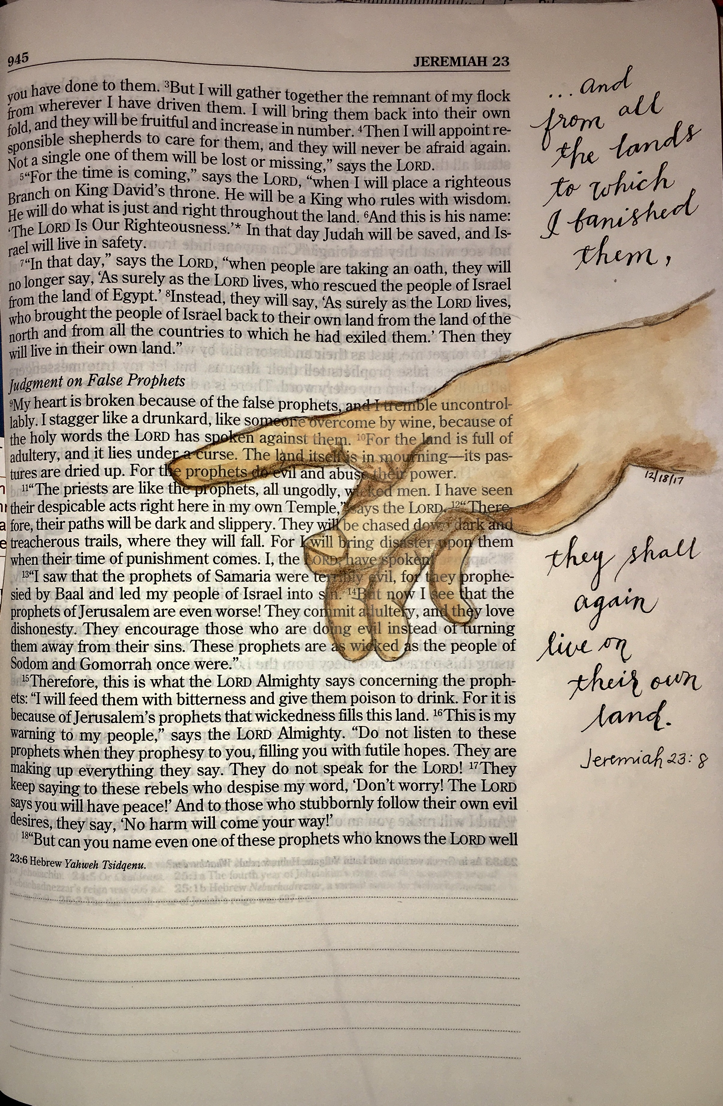 945
JEREMIAH 23
you have done to them. ³But I will gather together the remnant of my flock
from wherever I have driven them. I will bring them back into their own
fold, and they will be fruitful and increase in number. ⁴Then I will appoint re-
sponsible shepherds to care for them, and they will never be afraid again.
Not a single one of them will be lost or missing,” says the LORD.
⁵“For the time is coming,” says the LORD, “when I will place a righteous
Branch on King David’s throne. He will be a King who rules with wisdom.
He will do what is just and right throughout the land. ⁶And this is his name:
‘The LORD Is Our Righteousness.’* In that day Judah will be saved, and Is-
rael will live in safety.
⁷“In that day,” says the LORD, “when people are taking an oath, they will
no longer say, ‘As surely as the LORD lives, who rescued the people of Israel
from the land of Egypt.’ ⁸Instead, they will say, ‘As surely as the LORD lives,
who brought the people of Israel back to their own land from the land of the
north and from all the countries to which he had exiled them.’ Then they
will live in their own land.”
Judgment on False Prophets
⁹My heart is broken because of the false prophets, and I tremble uncontrol-
lably. I stagger like a drunkard, like someone overcome by wine, because of
the holy words the LORD has spoken against them. ¹⁰For the land is full of
adultery, and it lies under a curse. The land itself is in mourning—its pas-
tures are dried up. For the prophets do evil and abuse their power.
¹¹“The priests are like the prophets, all ungodly, wicked men. I have seen
their despicable acts right here in my own Temple,” says the LORD. ¹²“There-
fore, their paths will be dark and slippery. They will be chased down dark and
treacherous trails, where they will fall. For I will bring disaster upon them
when their time of punishment comes. I, the LORD, have spoken!
¹³“I saw that the prophets of Samaria were terribly evil, for they prophe-
sied by Baal and led my people of Israel into sin. ¹⁴But now I see that the
prophets of Jerusalem are even worse! They commit adultery, and they love
dishonesty. They encourage those who are doing evil instead of turning
them away from their sins. These prophets are as wicked as the people of
Sodom and Gomorrah once were.”
¹⁵Therefore, this is what the LORD Almighty says concerning the proph-
ets: “I will feed them with bitterness and give them poison to drink. For it is
because of Jerusalem’s prophets that wickedness fills this land. ¹⁶This is my
warning to my people,” says the LORD Almighty. “Do not listen to these
prophets when they prophesy to you, filling you with futile hopes. They are
making up everything they say. They do not speak for the LORD! ¹⁷They
keep saying to these rebels who despise my word, ‘Don’t worry! The LORD
says you will have peace!’ And to those who stubbornly follow their own evil
desires, they say, ‘No harm will come your way!’
¹⁸“But can you name even one of these prophets who knows the LORD well
23:6 Hebrew Yahweh Tsidqenu.
...and
from all
the lands
to which
I banished
them,
12/18/17
they shall
again
live on
their own
land.
Jeremiah 23:8